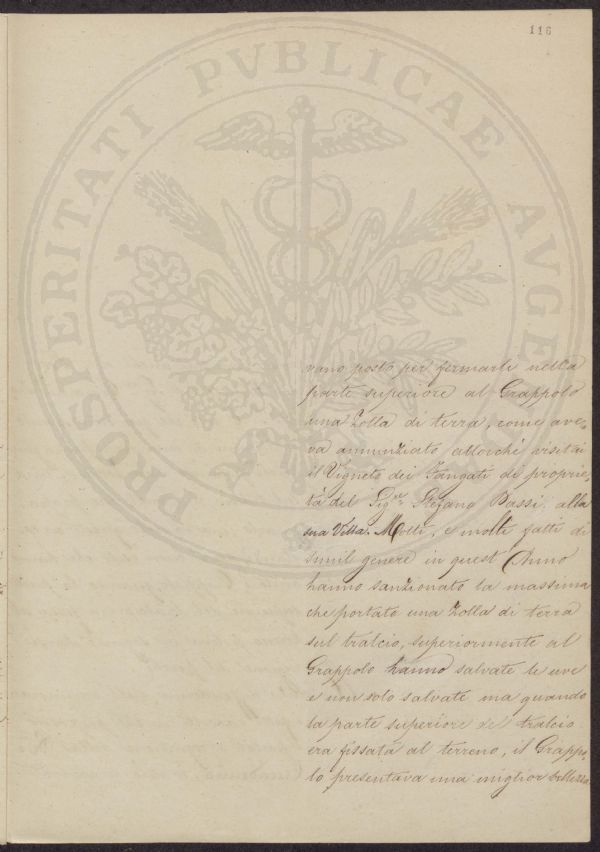 116
PROSPERITATI PVBLICAE AVGE
vano posto per fermarli nella
parte superiore al Grappolo
una Zolla di terra, come ave=
va annunziato allorchè visitai
il Vigneto dei Fangati di proprie=
tà del Sig.re Stefano Bassi, alla
sua Villa. Molti, e molti fatti di
simil genere in quest'Anno
hanno sanzionato la massima
che portato una Zolla di terra
sul tralcio, superiormente al
Grappolo hanno salvate le uve
e non solo salvate ma quando
la parte superiore del tralcio
era fissata al terreno, il Grappo=
lo presentava una miglior bellezza